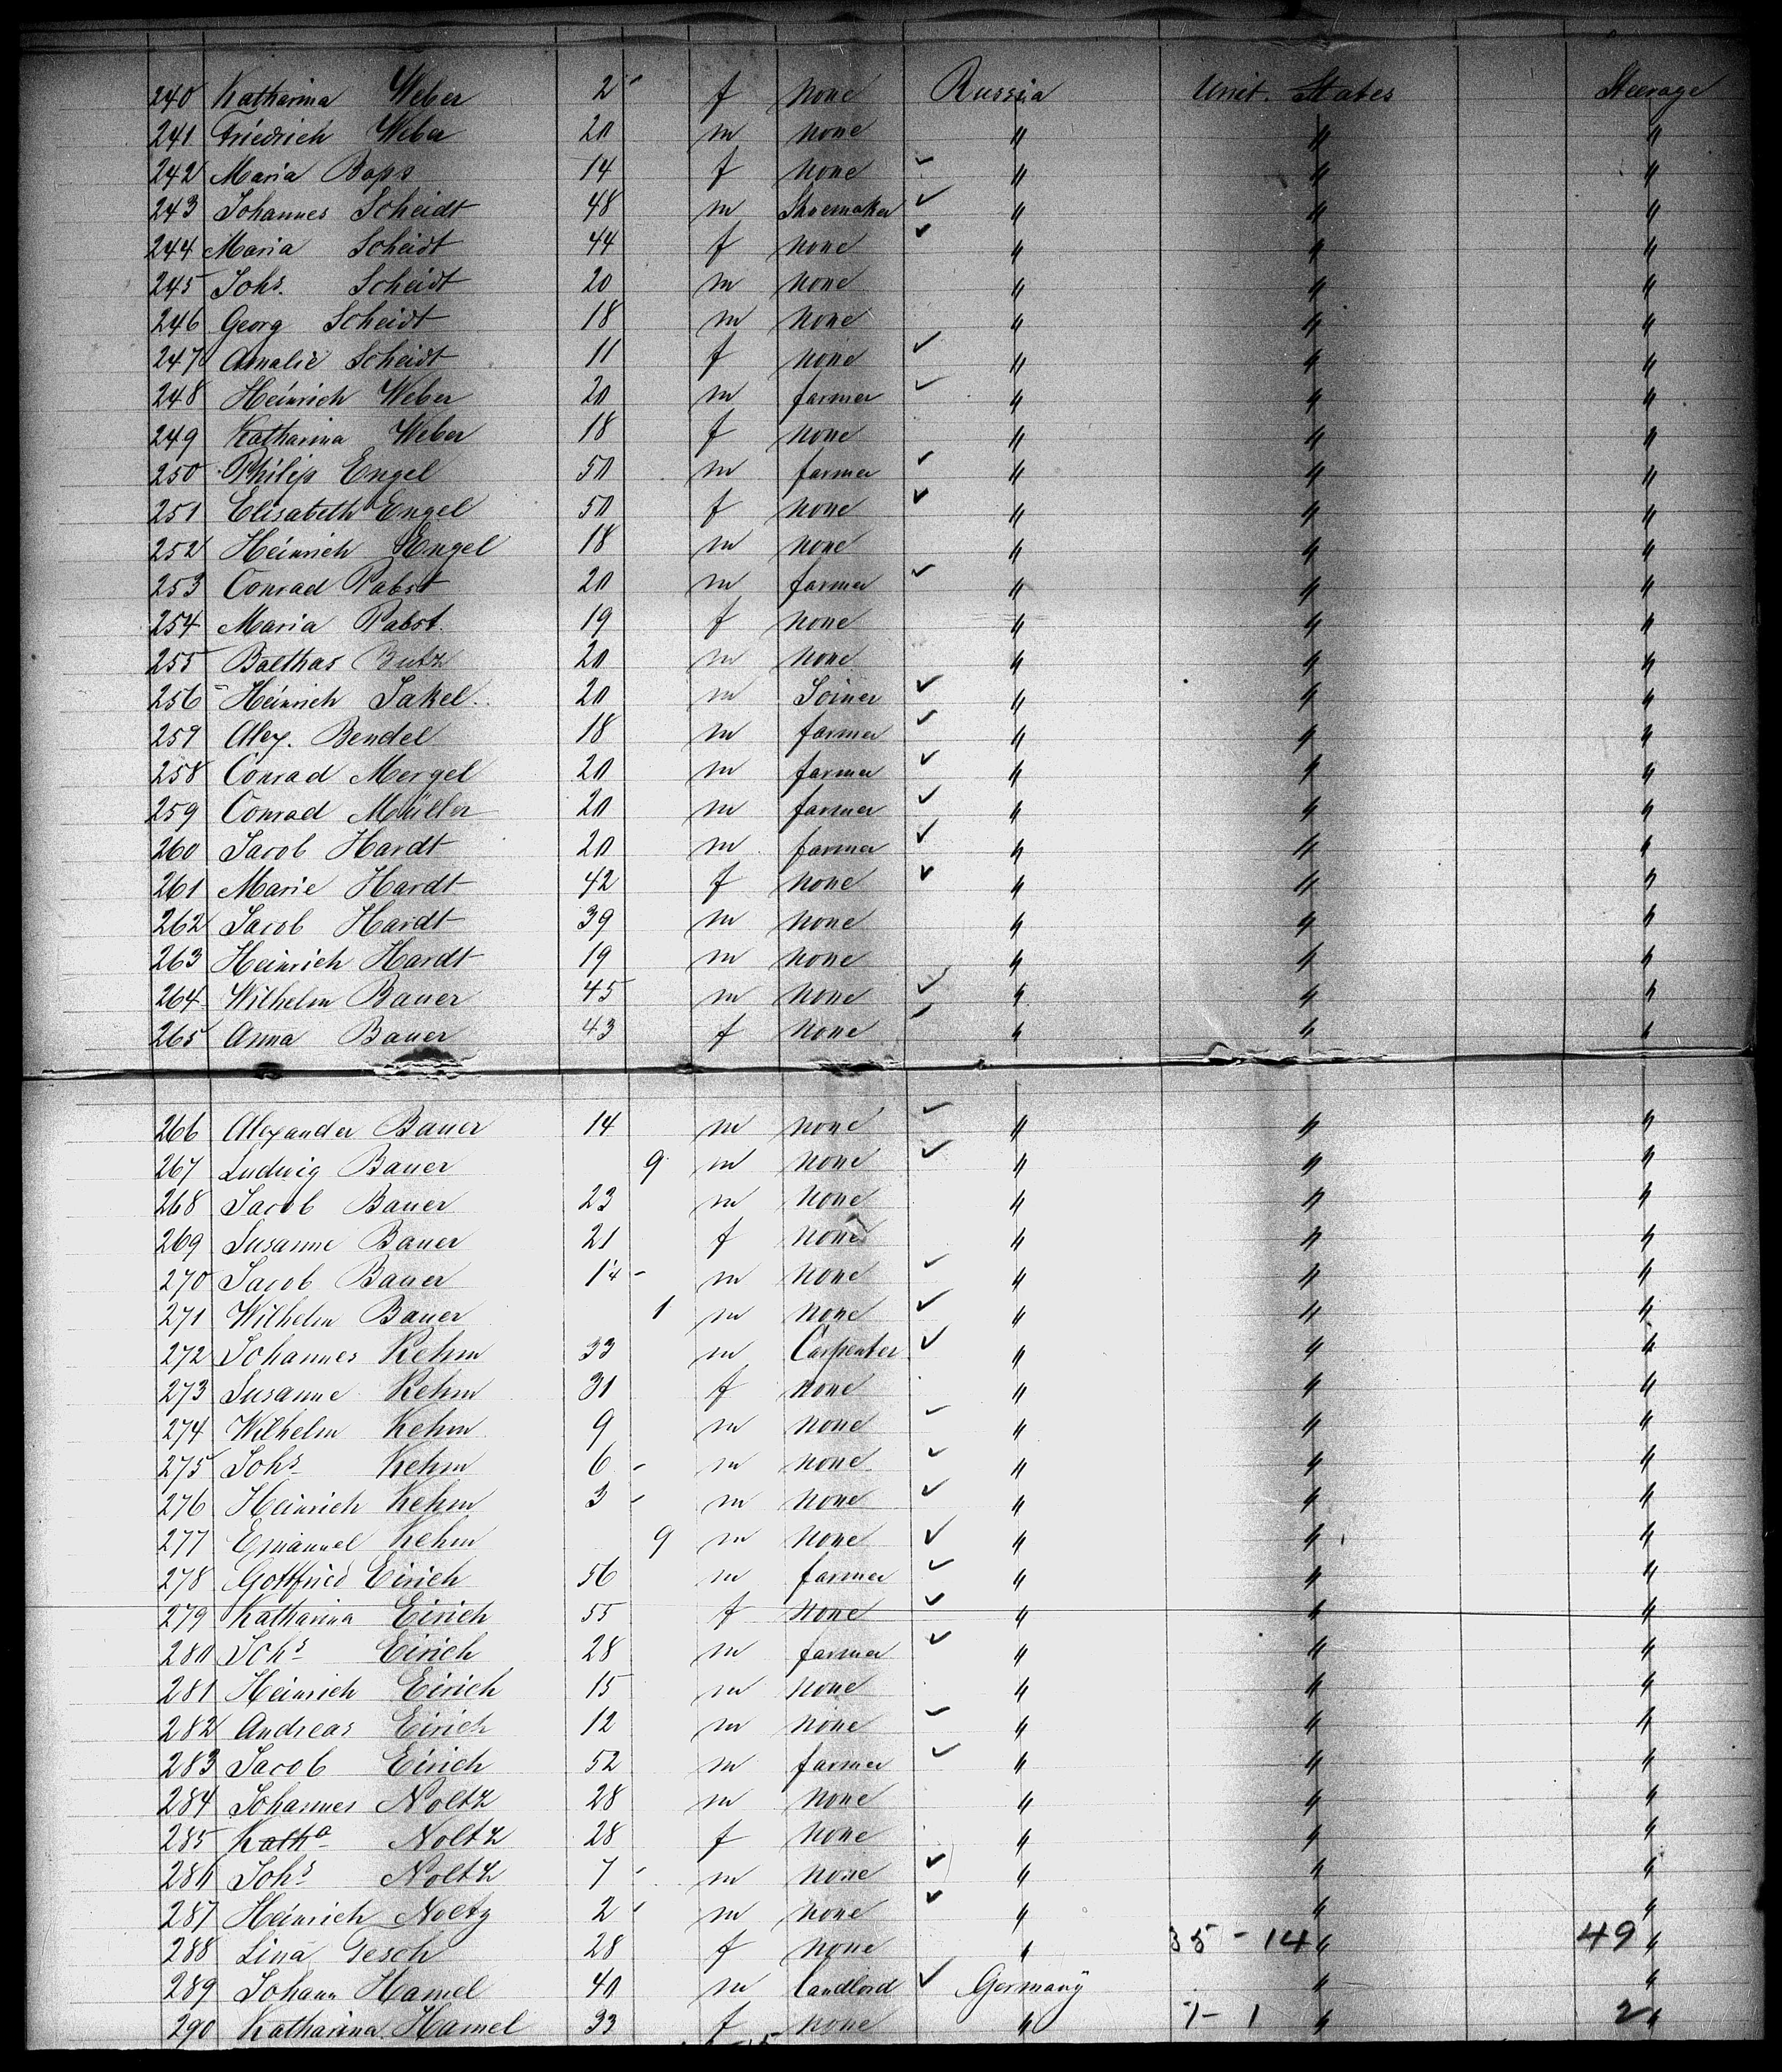 240 Katharina Weber 2 f none Russia Unit. States Steerage
241 Friedrich Weber 20 m none " " "
242 Maria Bops 14 f none ✓ " " "
243 Johannes Scheidt 48 m Shoemaker ✓ " " "
244 Maria Scheidt 44 f none ✓ " " "
245 Johs. Scheidt 20 m none " " "
246 Georg Scheidt 18 m none " " "
247 Amalie Scheidt 11 f none ✓ " " "
248 Heinrich Weber 20 m farmer ✓ " " "
249 Katharina Weber 18 f none " " "
250 Philip Engel 50 m farmer ✓ " " "
251 Elisabeth Engel 50 f none ✓ " " "
252 Heinrich Engel 18 m none " " "
253 Conrad Pabst 20 m farmer ✓ " " "
254 Maria Pabst 19 f none " " "
255 Balthas Butz 20 m none " " "
256 Heinrich Jakel 20 m Joiner ✓ " " "
257 Alex. Bendel 18 m farmer ✓ " " "
258 Conrad Mergel 20 m farmer ✓ " " "
259 Conrad Müller 20 m farmer ✓ " " "
260 Jacob Hardt 20 m farmer ✓ " " "
261 Marie Hardt 42 f none ✓ " " "
262 Jacob Hardt 39 m none " " "
263 Heinrich Hardt 19 m none " " "
264 Wilhelm Bauer 45 m none ✓ " " "
265 Anna Bauer 43 f none ✓ " " "
266 Alexander Bauer 14 m none ✓ " " "
267 Ludwig Bauer 9 m none ✓ " " "
268 Jacob Bauer 23 m none " " "
269 Susanne Bauer 21 f none " " "
270 Jacob Bauer m none ✓ " " "
271 Wilhelm Bauer 1 m none ✓ " " "
272 Johannes Kehm 33 m Carpenter ✓ " " "
273 Susanne Kehm 31 f none " " "
274 Wilhelm Kehm 9 m none ✓ " " "
275 Johs Kehm 6 - m none ✓ " " "
276 Heinrich Kehm 3 - m none ✓ " " "
277 Emanuel Kehm 9 m none ✓ " " "
278 Gottfried Eirich 56 m farmer ✓ " " "
279 Katharina Eirich 55 f none ✓ " " "
280 Johs Eirich 28 m farmer ✓ " " "
281 Heinrich Eirich 15 m none " " "
282 Andreas Eirich 12 m none ✓ " " "
283 Jacob Eirich 52 m farmer ✓ " " "
284 Johannes Noltz 28 m none " " "
285 Katha Noltz 28 f none " " "
286 Johs Noltz 7 - m none ✓ " " "
287 Heinrich Noltz 2 - m none ✓ " " "
288 Lina Gesch 28 f none " 35 - 14 " 49 "
289 Johann Hamel 40 m Landlord ✓ Germany " "
290 Katharina Hamel 33 f none " 1 - 1 " 2 "